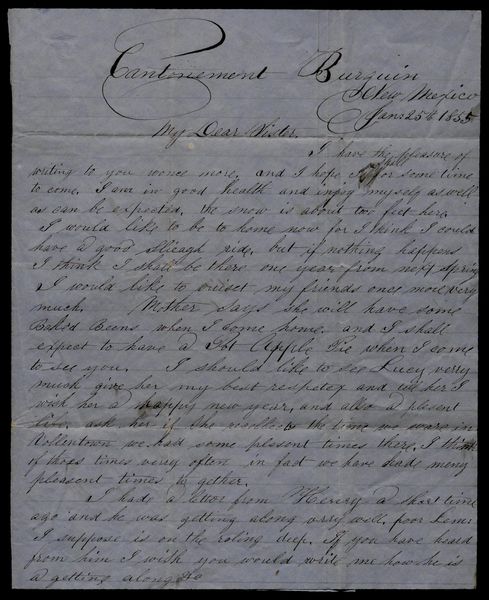 Cantonement Burguin
New Mexico
Jan: 25th 1855
My Dear Sister.
I have the pleasure of
writing to you wonce more, and I hope I shall for some time
to come. I am in good health and injoy myself as well
as can be expected, the snow is about too feet here.
I would like to be to home now for I think I could
have a good Sleagh ride, but if nothing happens
I think I shall be there one year from next spring
I would like to my friends once more very
much. Mother says she will have some
Baked Beens when I come home, and I shall
expect to have a Apple Pie when I come
to see you. I should like to see Lucy verry
much give her my best and tell her I
wish her a happy new year, and also a plesent
live. ask her if she recollects the time we ware in
we had some plesent times there, I think
of thoas times verry often in fact we have had meny
pleasent times to gether.
I had a letter from Henry a short time
ago and he was getting along very well, poor
I suppose is on the roling deep. If you have heard
from him I wish you would write me how he is
a getting along